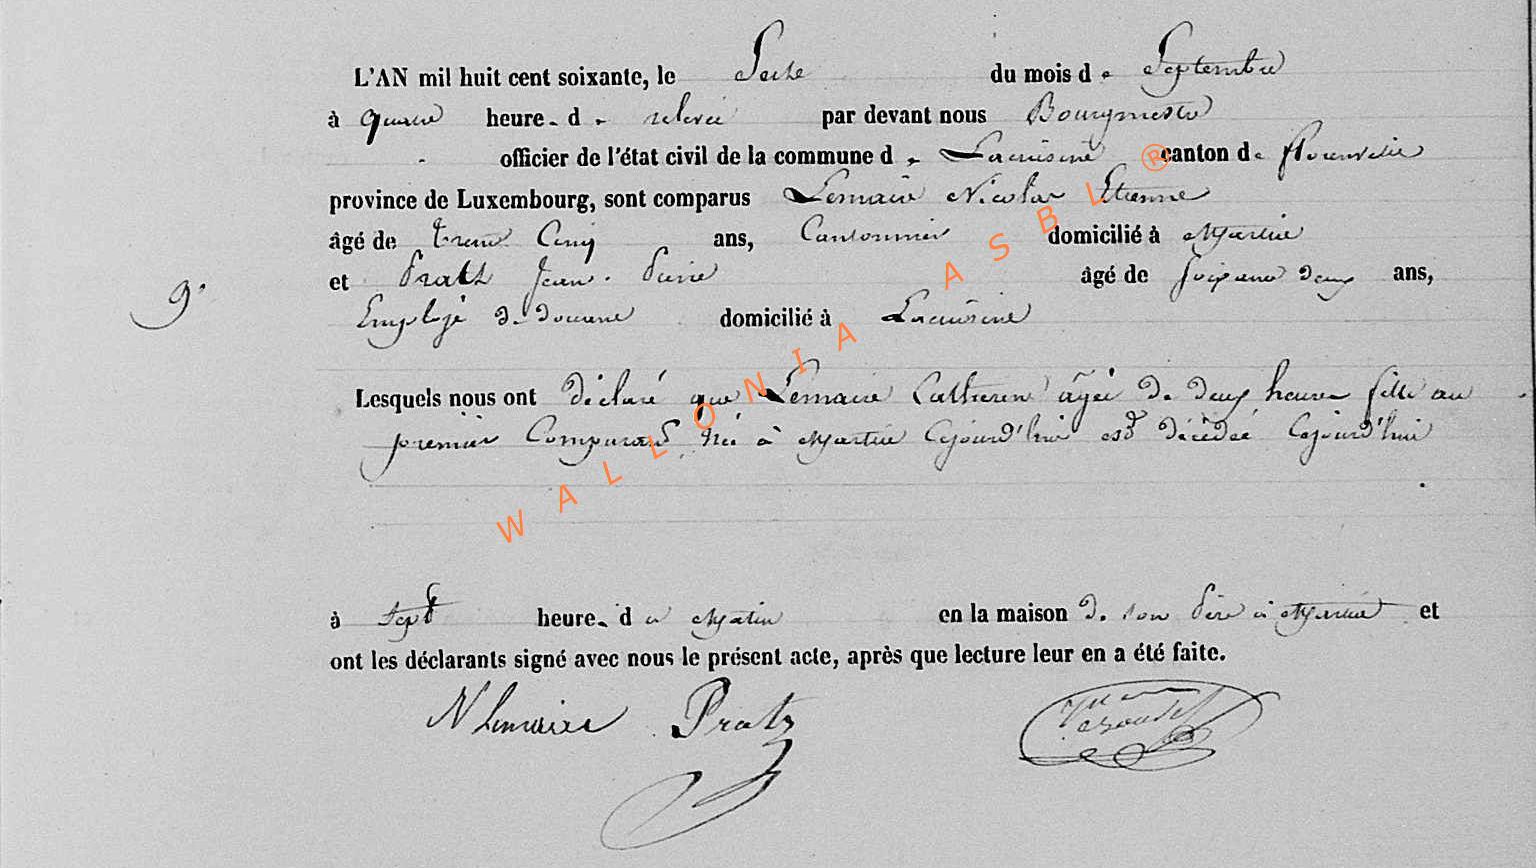 L'AN mil huit cent soixante, le Seize du mois de Septembre
à quatre heure. de relevée par devant nous Bourgmestre
officier de l'état civil de la commune de Lacuisine canton de Florenville
province de Luxembourg, sont comparus Lemaire Nicolas Etienne
âgé de trente Cinq ans, Cantonnier domicilié à Martué
9. et Pratz Jean Pierre âgé de soixante deux ans,
Employé de douane domicilié à Lacuisine
Lesquels nous ont déclaré que Lemaire Catherine âgée de deux heures fille au
premier Comparant née à Martué Cejourd'hui est décédée Cejourd'hui
à sept heure. du Matin en la maison de son Père à Martué et
ont les déclarants signé avec nous le présent acte, après que lecture leur en a été faite.
N Lemaire Pratz
WALLONIA ASBL ®